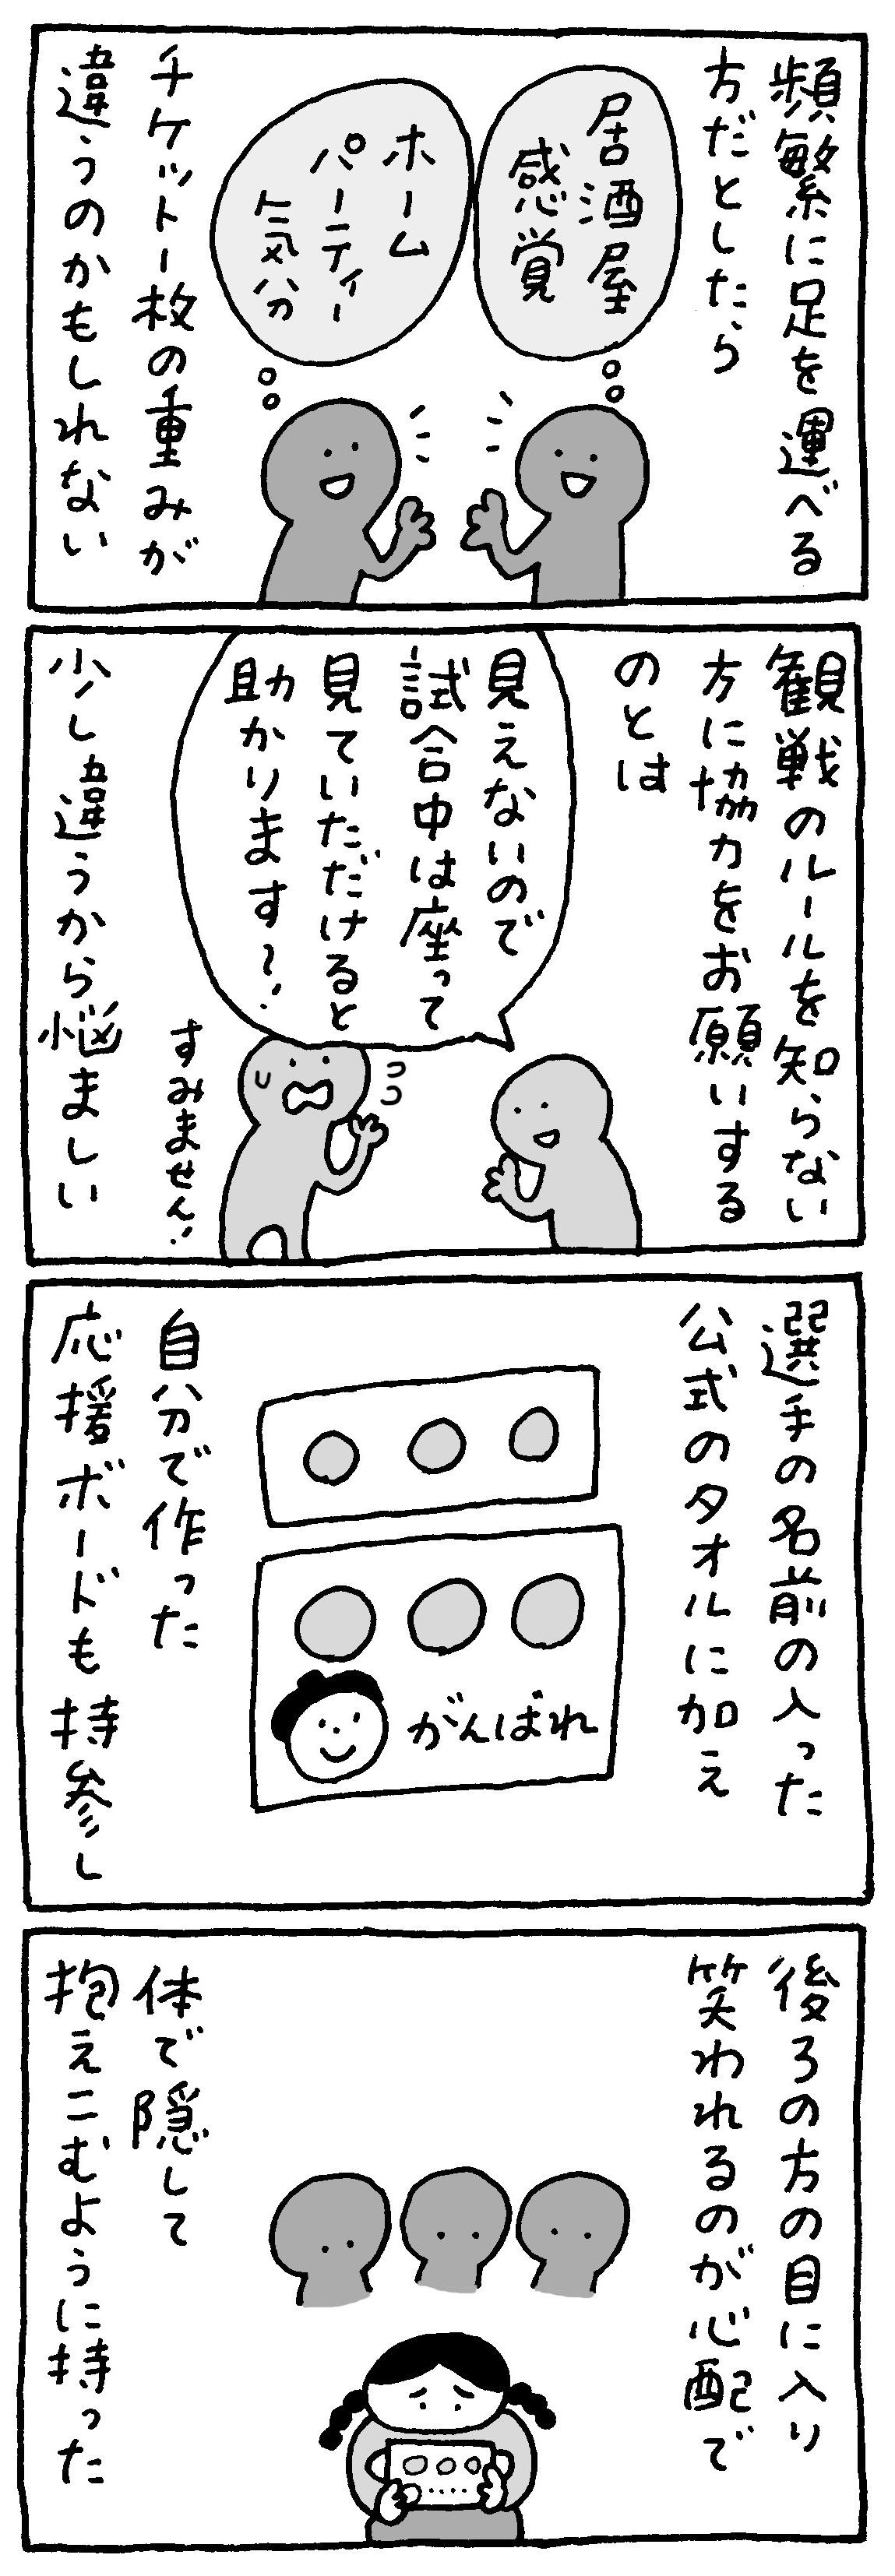 頻繁に足を運べる
方だとしたら
居酒屋
感覚
ホーム
パーティー
気分
チケット一枚の重みが
違うのかもしれない
観戦のルールを知らない
方に協力をお願いする
のとは
見えないので
試合中は座って
見ていただけると
助かります〜!
すみません!
少し違うから悩ましい
選手の名前の入った
公式のタオルに加え
がんばれ
自分で作った
応援ボードも持参し
後ろの方の目に入り
笑われるのが心配で
体で隠して
抱えこむように持った